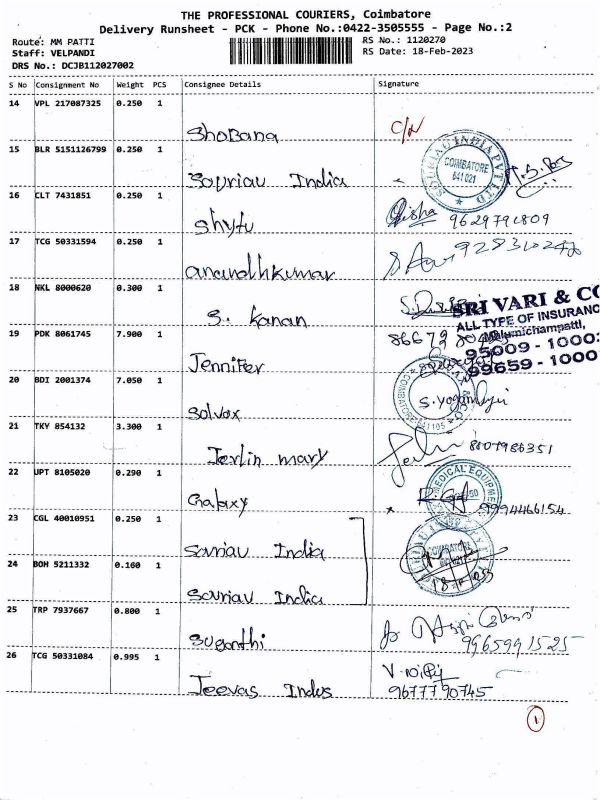 THE PROFESSIONAL COURIERS, Coimbatore
Delivery Runsheet - PCK - Phone No.:0422-3505555 - Page No.:2
Route: MM PATTI
Staff: VELPANDI
DRS No.: DCJB112027002
RS No.: 1120270
RS Date: 18-Feb-2023
S No Consignment No Weight PCS Consignee Details Signature
14 VPL 217087325 0.250 1 Shobana C/N
15 BLR 5151126799 0.250 1 Souriau India
SOURIAU INDIA PVT LTD COIMBATORE 641 021
16 CLT 7431851 0.250 1 Shyfu 9629791809
17 TCG 50331594 0.250 1 anandhkumar
18 NKL 8000620 0.300 1 S. Kanan
SRI VARI & CO
ALL TYPE OF INSURANC
Malumichampatti,
95009 - 1000
99659 - 1000
19 PDK 8061745 7.900 1 Jennifer
20 BDI 2001374 7.050 1 Solvox
COIMBATORE 641105
21 TKY 854132 3.300 1 Jerlin mary
22 UPT 8105020 0.290 1 Galaxy 9994466154
MEDICAL EQUIPME
23 CGL 40010951 0.250 1 Souriau India
COIMBATORE
24 BOH 5211332 0.160 1 Souriau India
25 TRP 7937667 0.800 1 Suganthi 9965991525
26 TCG 50331084 0.995 1 Jeevas Indus 9677790745
1